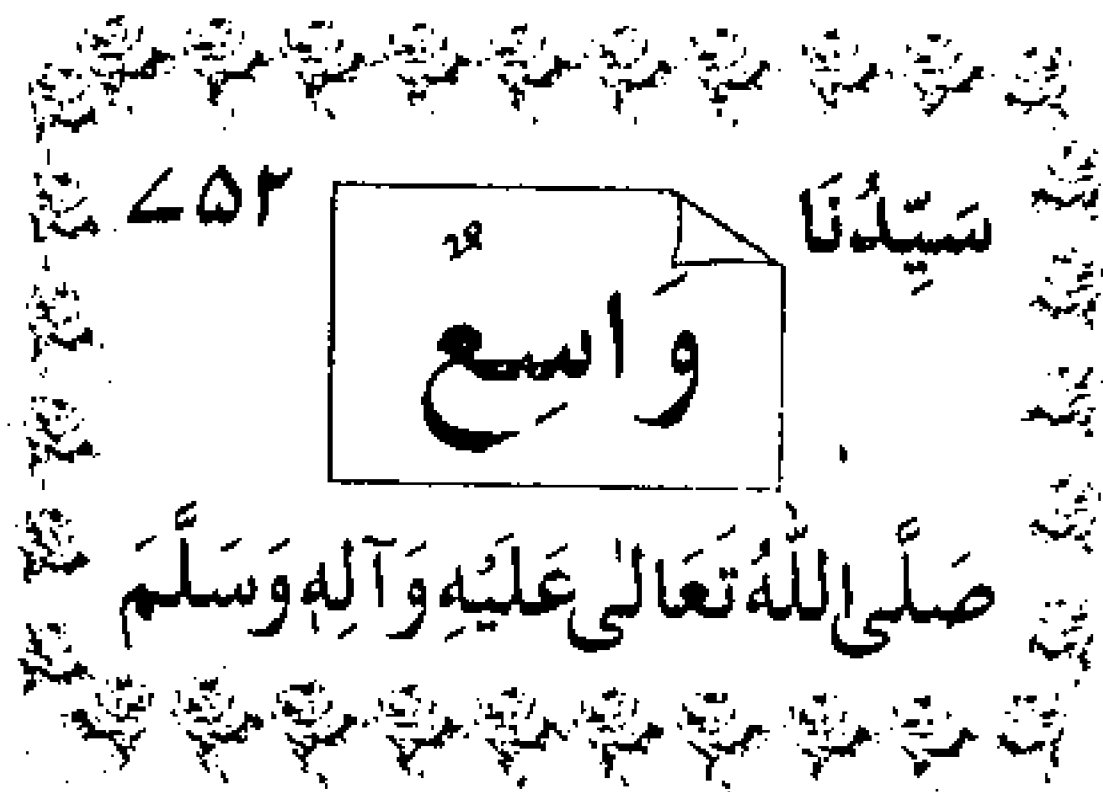 سَيِّدُنَا ۷۵۲
وَاسِعٌ
صَلَّى اللّٰهُ تَعَالٰى عَلَيْهِ وَآلِهٖ وَسَلَّمَ